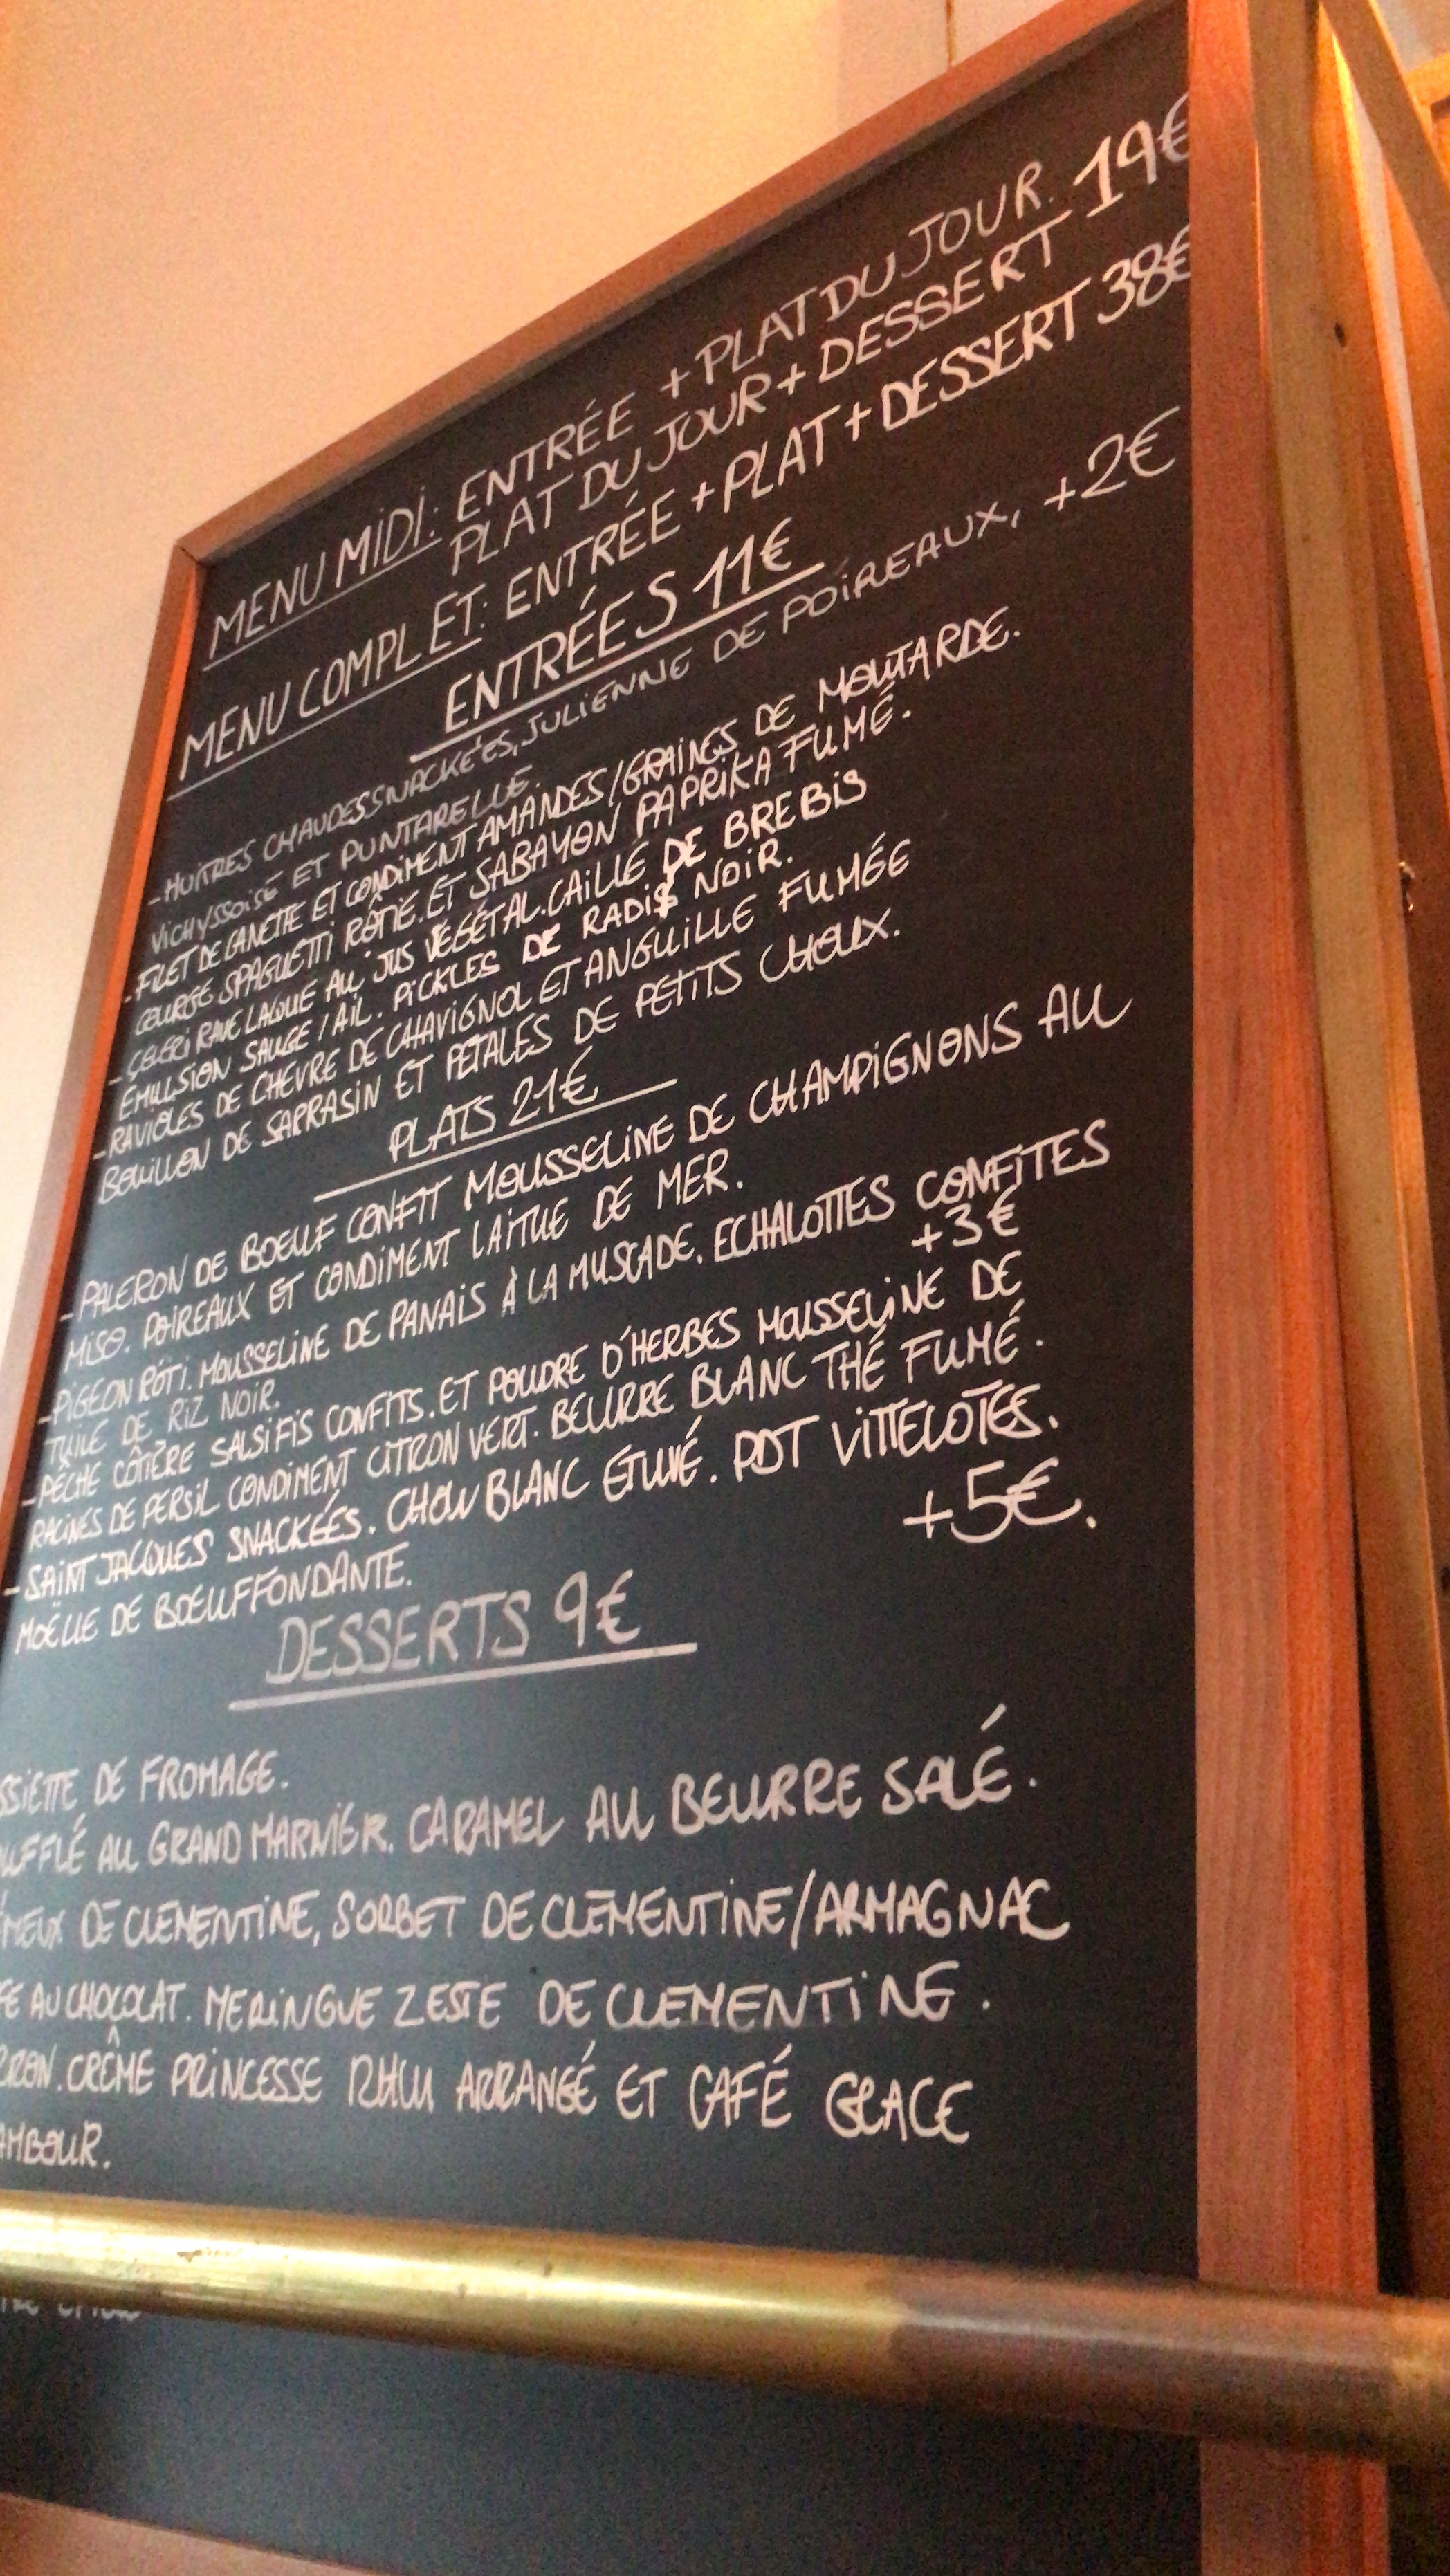 MENU MIDI: ENTRÉE + PLAT DU JOUR. 19€
PLAT DU JOUR + DESSERT
MENU COMPLET: ENTRÉE + PLAT + DESSERT 38€
ENTRÉES 11€
- HUITRES CHAUDES SNACKÉES, JULIENNE DE POIREAUX, +2€
VICHYSSOISE ET PUNTARELLE.
- FILET DE CANETTE ET CONDIMENT AMANDES/GRAINES DE MOUTARDE.
COURGE SPAGUETTI RÔTIE. ET SABAYON PAPRIKA FUMÉ.
- CELERI RAVE LAQUÉ AU JUS VEGÉTAL. CAILLÉ DE BREBIS
ÉMULSION SAUGE / AIL. PICKLES DE RADIS NOIR.
- RAVIOLES DE CHEVRE DE CHAVIGNOL ET ANGUILLE FUMÉE
BOUILLON DE SARRASIN ET PÉTALES DE PETITS CHOUX.
PLATS 21€
- PALERON DE BOEUF CONFIT MOUSSELINE DE CHAMPIGNONS AU
MISO. POIREAUX ET CONDIMENT LAITUE DE MER.
- PIGEON RÔTI. MOUSSELINE DE PANAIS À LA MUSCADE. ECHALOTTES CONFITES
TUILE DE RIZ NOIR. +3€
- PÊCHE CÔTIÈRE SALSIFIS CONFITS. ET POUDRE D'HERBES MOUSSELINE DE
RACINES DE PERSIL CONDIMENT CITRON VERT. BEURRE BLANC THÉ FUMÉ.
- SAINT JACQUES SNACKÉES. CHOU BLANC ETUVÉ. PDT VITTELOTES.
MOËLLE DE BOEUF FONDANTE. +5€.
DESSERTS 9€
SSIETTE DE FROMAGE.
UFFLÉ AU GRAND MARNIER. CARAMEL AU BEURRE SALÉ.
ÉMEUX DE CLEMENTINE, SORBET DE CLÉMENTINE/ARMAGNAC
AU CHOCOLAT. MERINGUE ZESTE DE CLEMENTINE.
CRÊME PRINCESSE RHUM ARRANGÉ ET CAFÉ GLACE
AMBOUR.